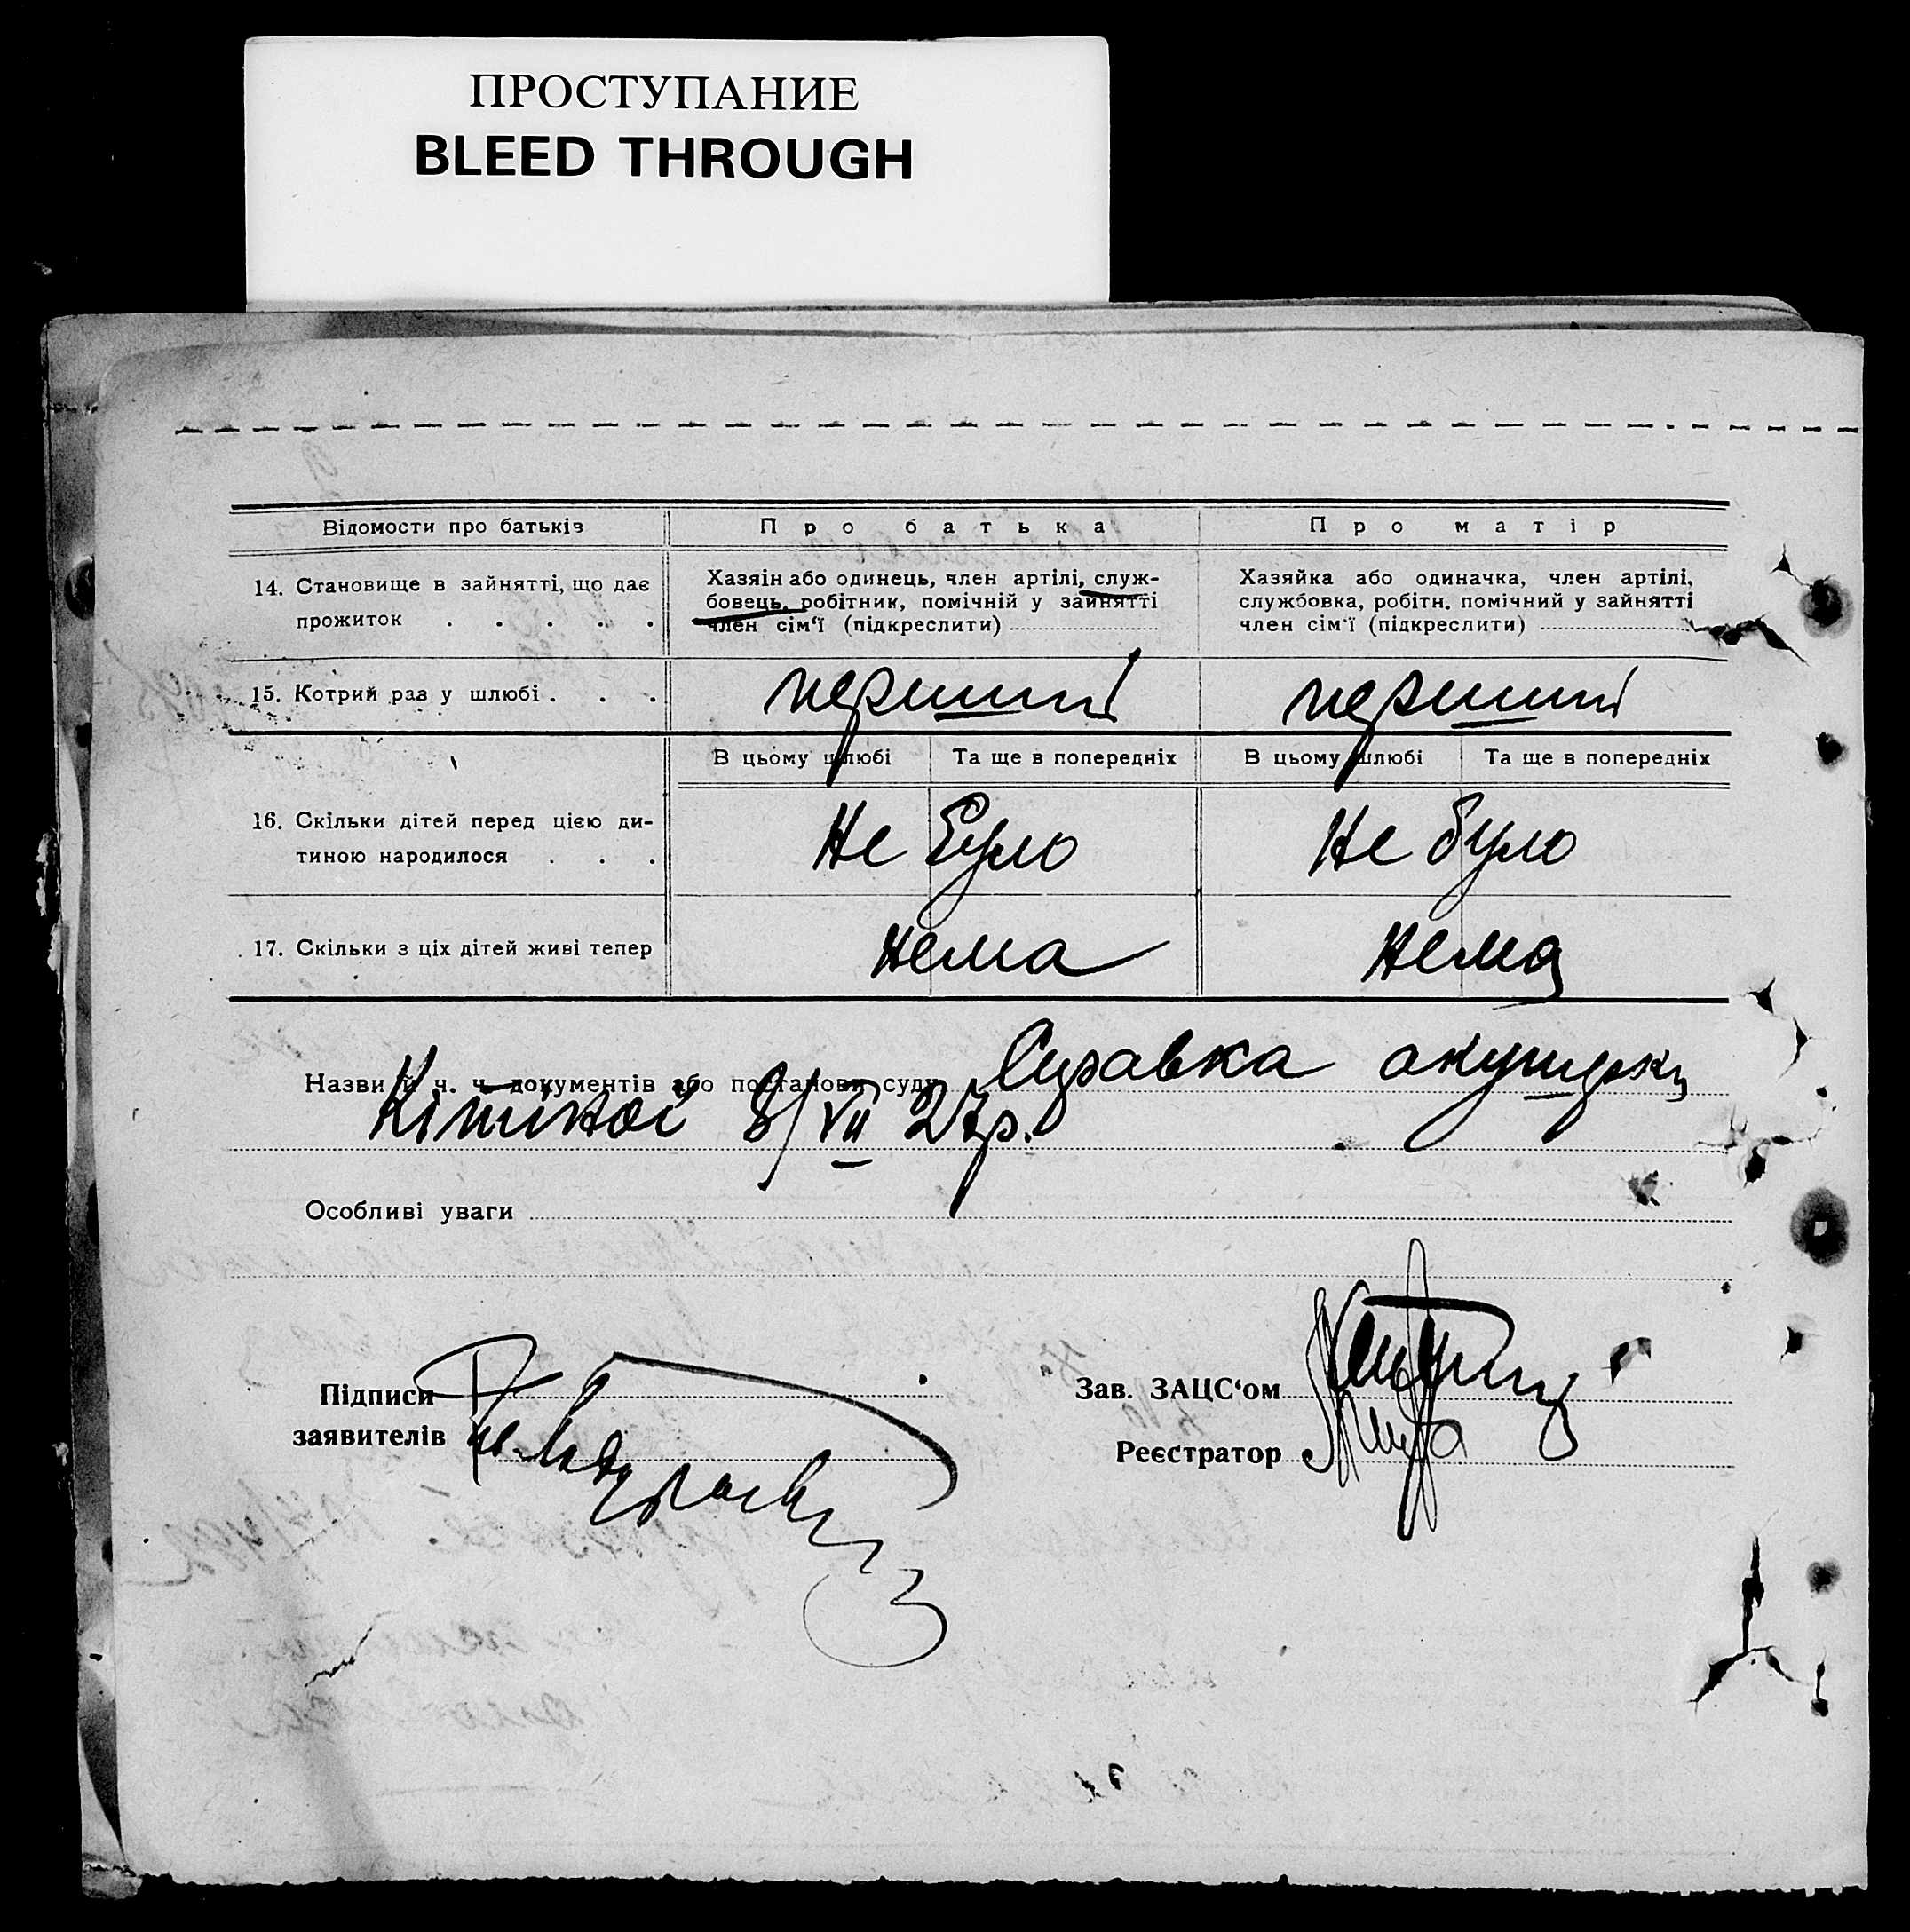 ПРОСТУПАНИЕ
BLEED THROUGH
Відомости про батьків
Про батька
Про матір
14. Становище в зайнятті, що дає
прожиток . . . . .
Хазяїн або одинець, член артілі, служ-
бовець, робітник, помічній у зайнятті
член сім‘ї (підкреслити)
Хазяйка або одиначка, член артілі,
службовка, робітн. помічний у зайнятті
член сім‘ї (підкреслити)
15. Котрий раз у шлюбі . . .
перший
перший
В цьому шлюбі
Та ще в попередніх
В цьому шлюбі
Та ще в попередніх
16. Скільки дітей перед цією ди-
тиною народилося . . .
Не було
Не було
17. Скільки з ціх дітей живі тепер
нема
нема
Назви й ч. ч. документів або постанови суду Справка акушерки
8/VII 27р.
Особливі уваги
Підписи
заявителів
Зав. ЗАЦС‘ом
Реєстратор